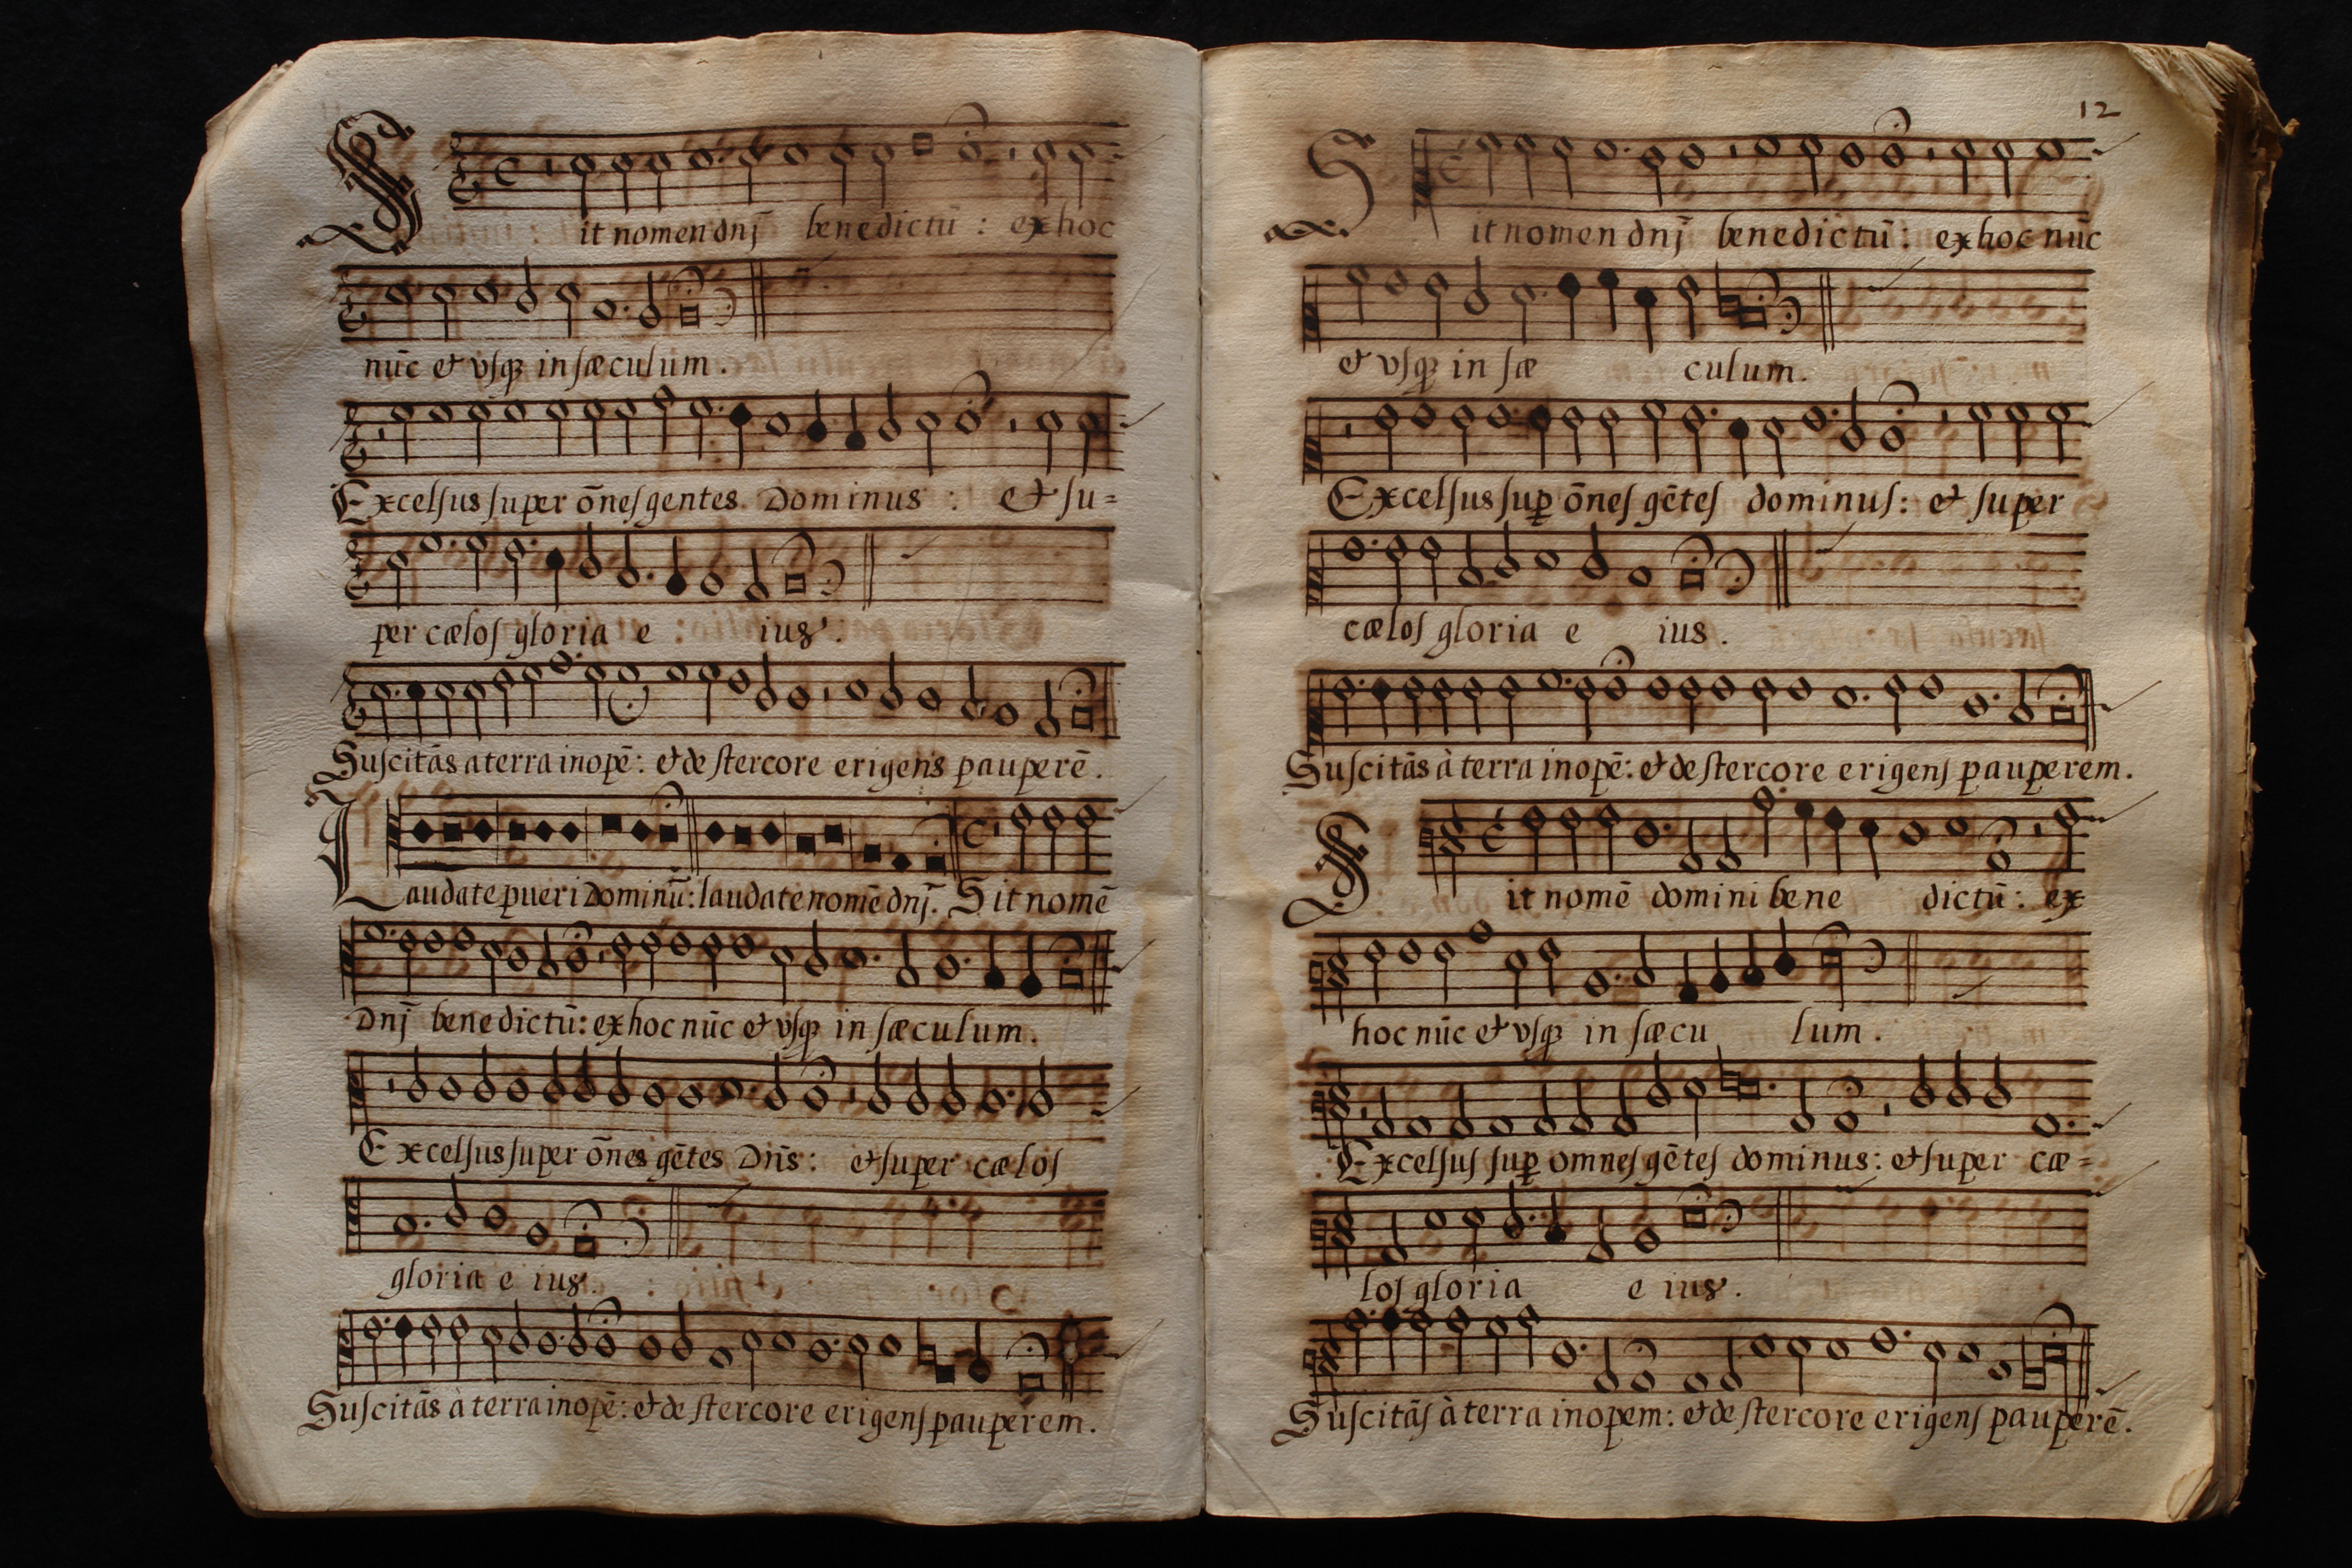 Sit nomen dnj̄ benedictū : ex hoc
nūc et vſqȝ in ſæculum.
Excelſus ſuper ōneſ gentes Dominus : et ſu=
per cæloſ gloria e ius.
Suſcitās a terra inopē: et de ſtercore erigens pauperē.
Laudate pueri Dominū: laudate nomē dnj̄. Sit nomē
Dnj̄ benedictū: ex hoc nūc et vſqȝ in ſæculum.
Excelſus ſuper ōnes gētes Dn̄s: et ſuper cæloſ
gloria e ius.
Suſcitās à terra inopē: et de ſtercore erigenſ pauperem.
12
Sit nomen dnj̄ benedictū: ex hoc nūc
et vſqȝ in ſæ culum.
Excelſus ſuꝑ ōneſ gēteſ dominuſ: et ſuper
cæloſ gloria e ius.
Suſcitās à terra inopē: et de ſtercore erigenſ pauperem.
Sit nomē domini bene dictū: ex
hoc nūc et vſqȝ in ſæcu lum.
Excelſuſ ſuꝑ omneſ gēteſ dominus: et ſuper cæ=
loſ gloria e ius.
Suſcitāſ à terra inopem: et de ſtercore erigenſ pauperē.